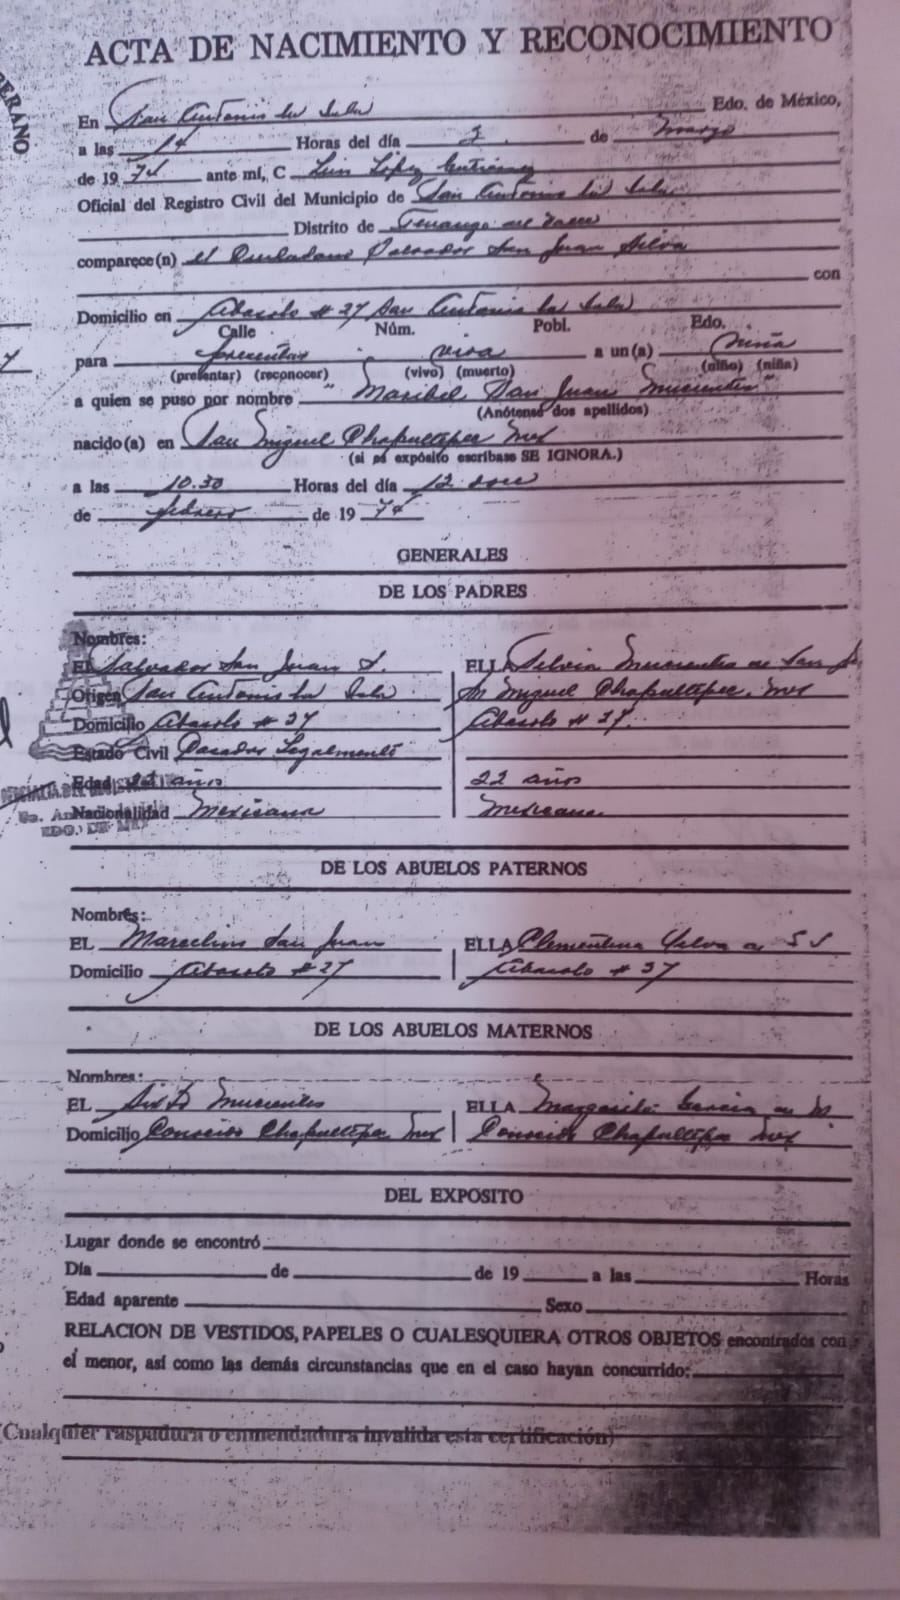 ERANO
ACTA DE NACIMIENTO Y RECONOCIMIENTO
En San Antonio la Isla Edo. de México,
a las 14 Horas del día de marzo
de 1974 ante mí, C Luis López Gutiérrez
Oficial del Registro Civil del Municipio de San Antonio la Isla
Distrito de Tenango del Valle
comparece(n) el Ciudadano Salvador San Juan Silva
con
Domicilio en Abasolo # 27 San Antonio la Isla
Calle Núm. Pobl. Edo.
para presentar viva a un(a) niña
(presentar) (reconocer) (vivo) (muerto) (niño) (niña)
a quien se puso por nombre "Maribel San Juan
(Anótense dos apellidos)
nacido(a) en San Miguel Chapultepec Mex
(si es expósito escríbase SE IGNORA.)
a las 10.30 Horas del día 12 doce
de febrero de 1974
GENERALES
DE LOS PADRES
Nombres:
EL Salvador San Juan S. ELLA Silvia de San J
Origen San Antonio la Isla Sn Miguel Chapultepec. Mex
Domicilio Abasolo # 27 Abasolo # 27.
Estado Civil Casados Legalmente
Edad años 22 años
Nacionalidad Mexicana Mexicana.
EDO. DE MEX
DE LOS ABUELOS PATERNOS
Nombres:
EL Marcelino San Juan ELLA Clementina de S J
Domicilio Abasolo # 27 Abasolo # 27
DE LOS ABUELOS MATERNOS
Nombres:
EL Sixto ELLA Margarita Garcia de M.
Domicilio Conocido Chapultepec Mex Conocido Chapultepec Mex
DEL EXPOSITO
Lugar donde se encontró
Día de de 19 a las Horas
Edad aparente Sexo
RELACION DE VESTIDOS, PAPELES O CUALESQUIERA OTROS OBJETOS encontrados con
el menor, así como las demás circunstancias que en el caso hayan concurrido:
(Cualquier raspadura o enmendadura invalida esta certificación)